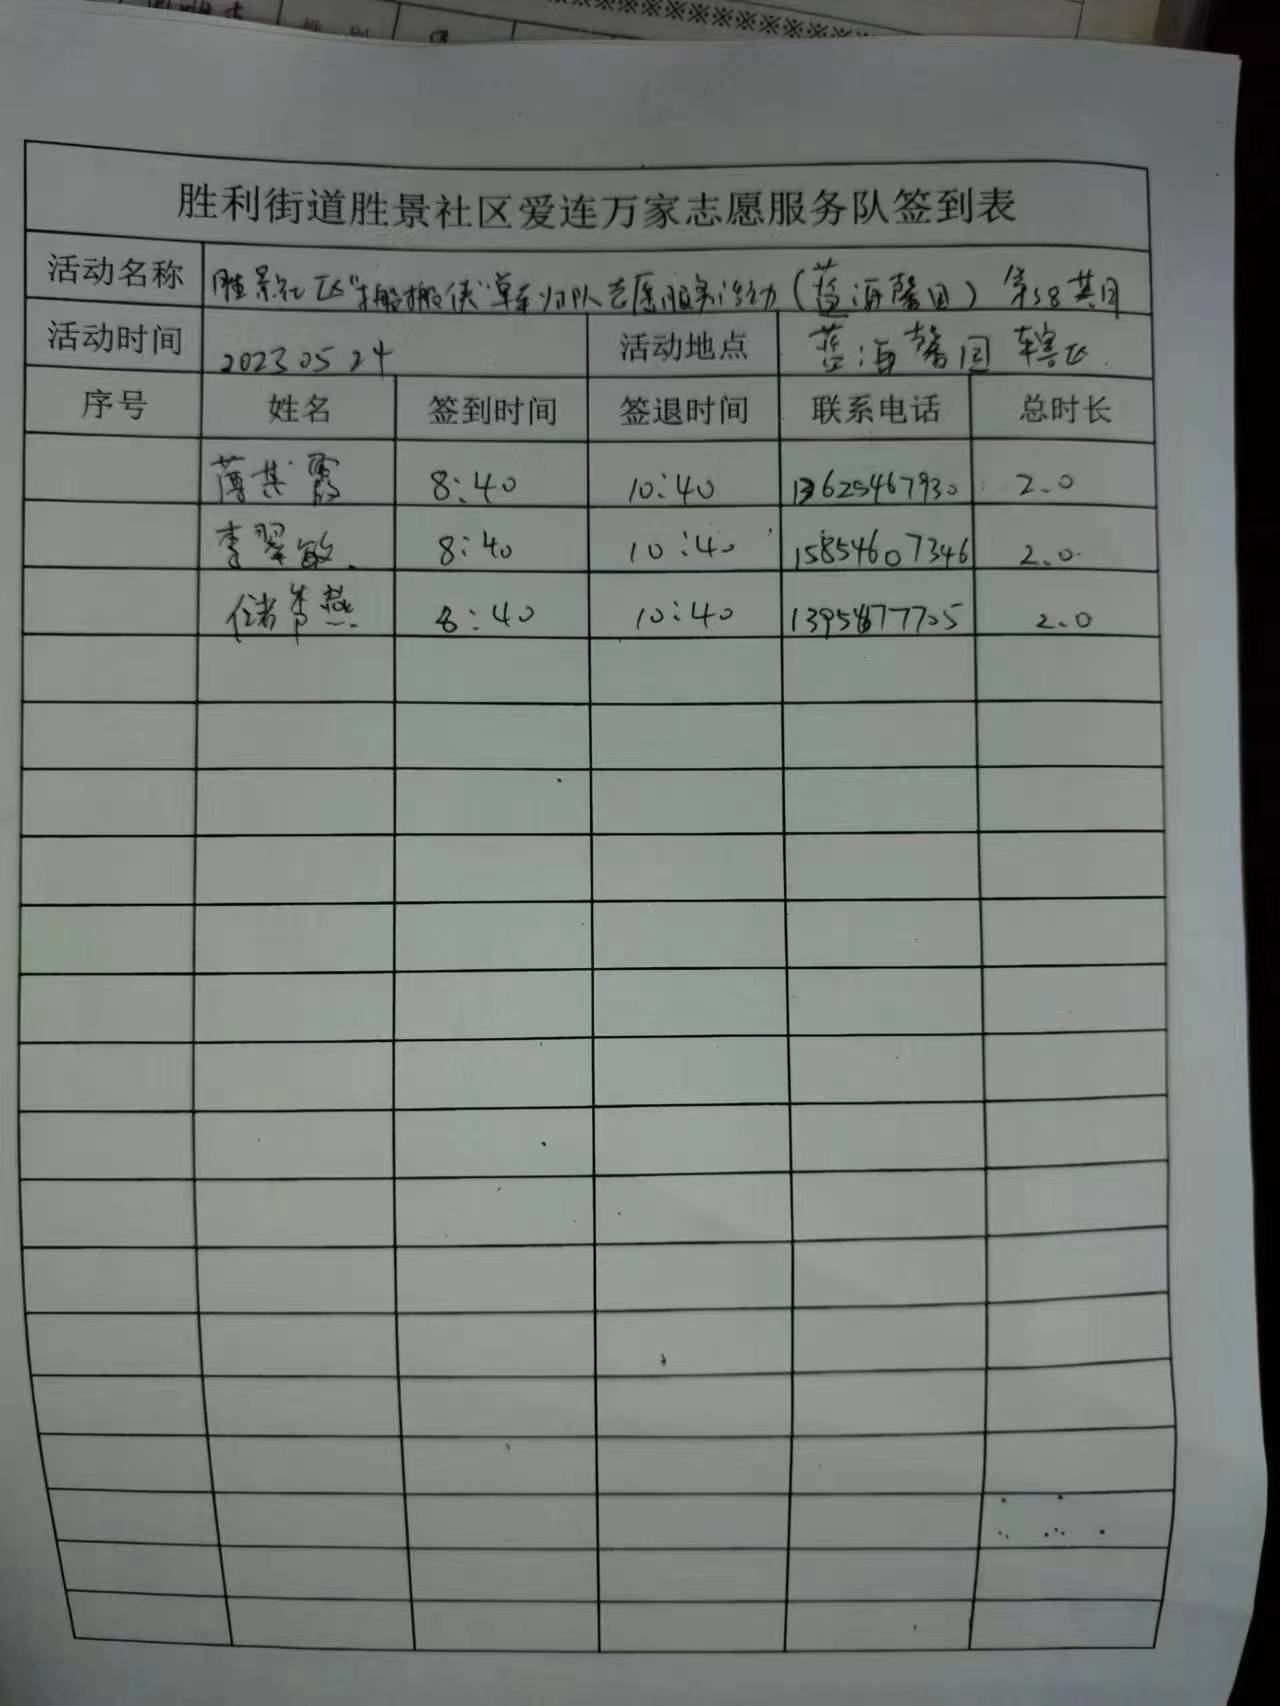 性别
※※※※※※※※※※※※※※※※
胜利街道胜景社区爱连万家志愿服务队签到表
活动名称 胜景社区“搬搬侠”单车归队志愿服务活动(蓝海馨园)第38期
活动时间 20230524 活动地点 蓝海馨园辖区
序号 姓名 签到时间 签退时间 联系电话 总时长
薄其霞 8:40 10:40 13625467930 2.0
李翠敏 8:40 10:40 15854607346 2.0
储青燕 8:40 10:40 2.0